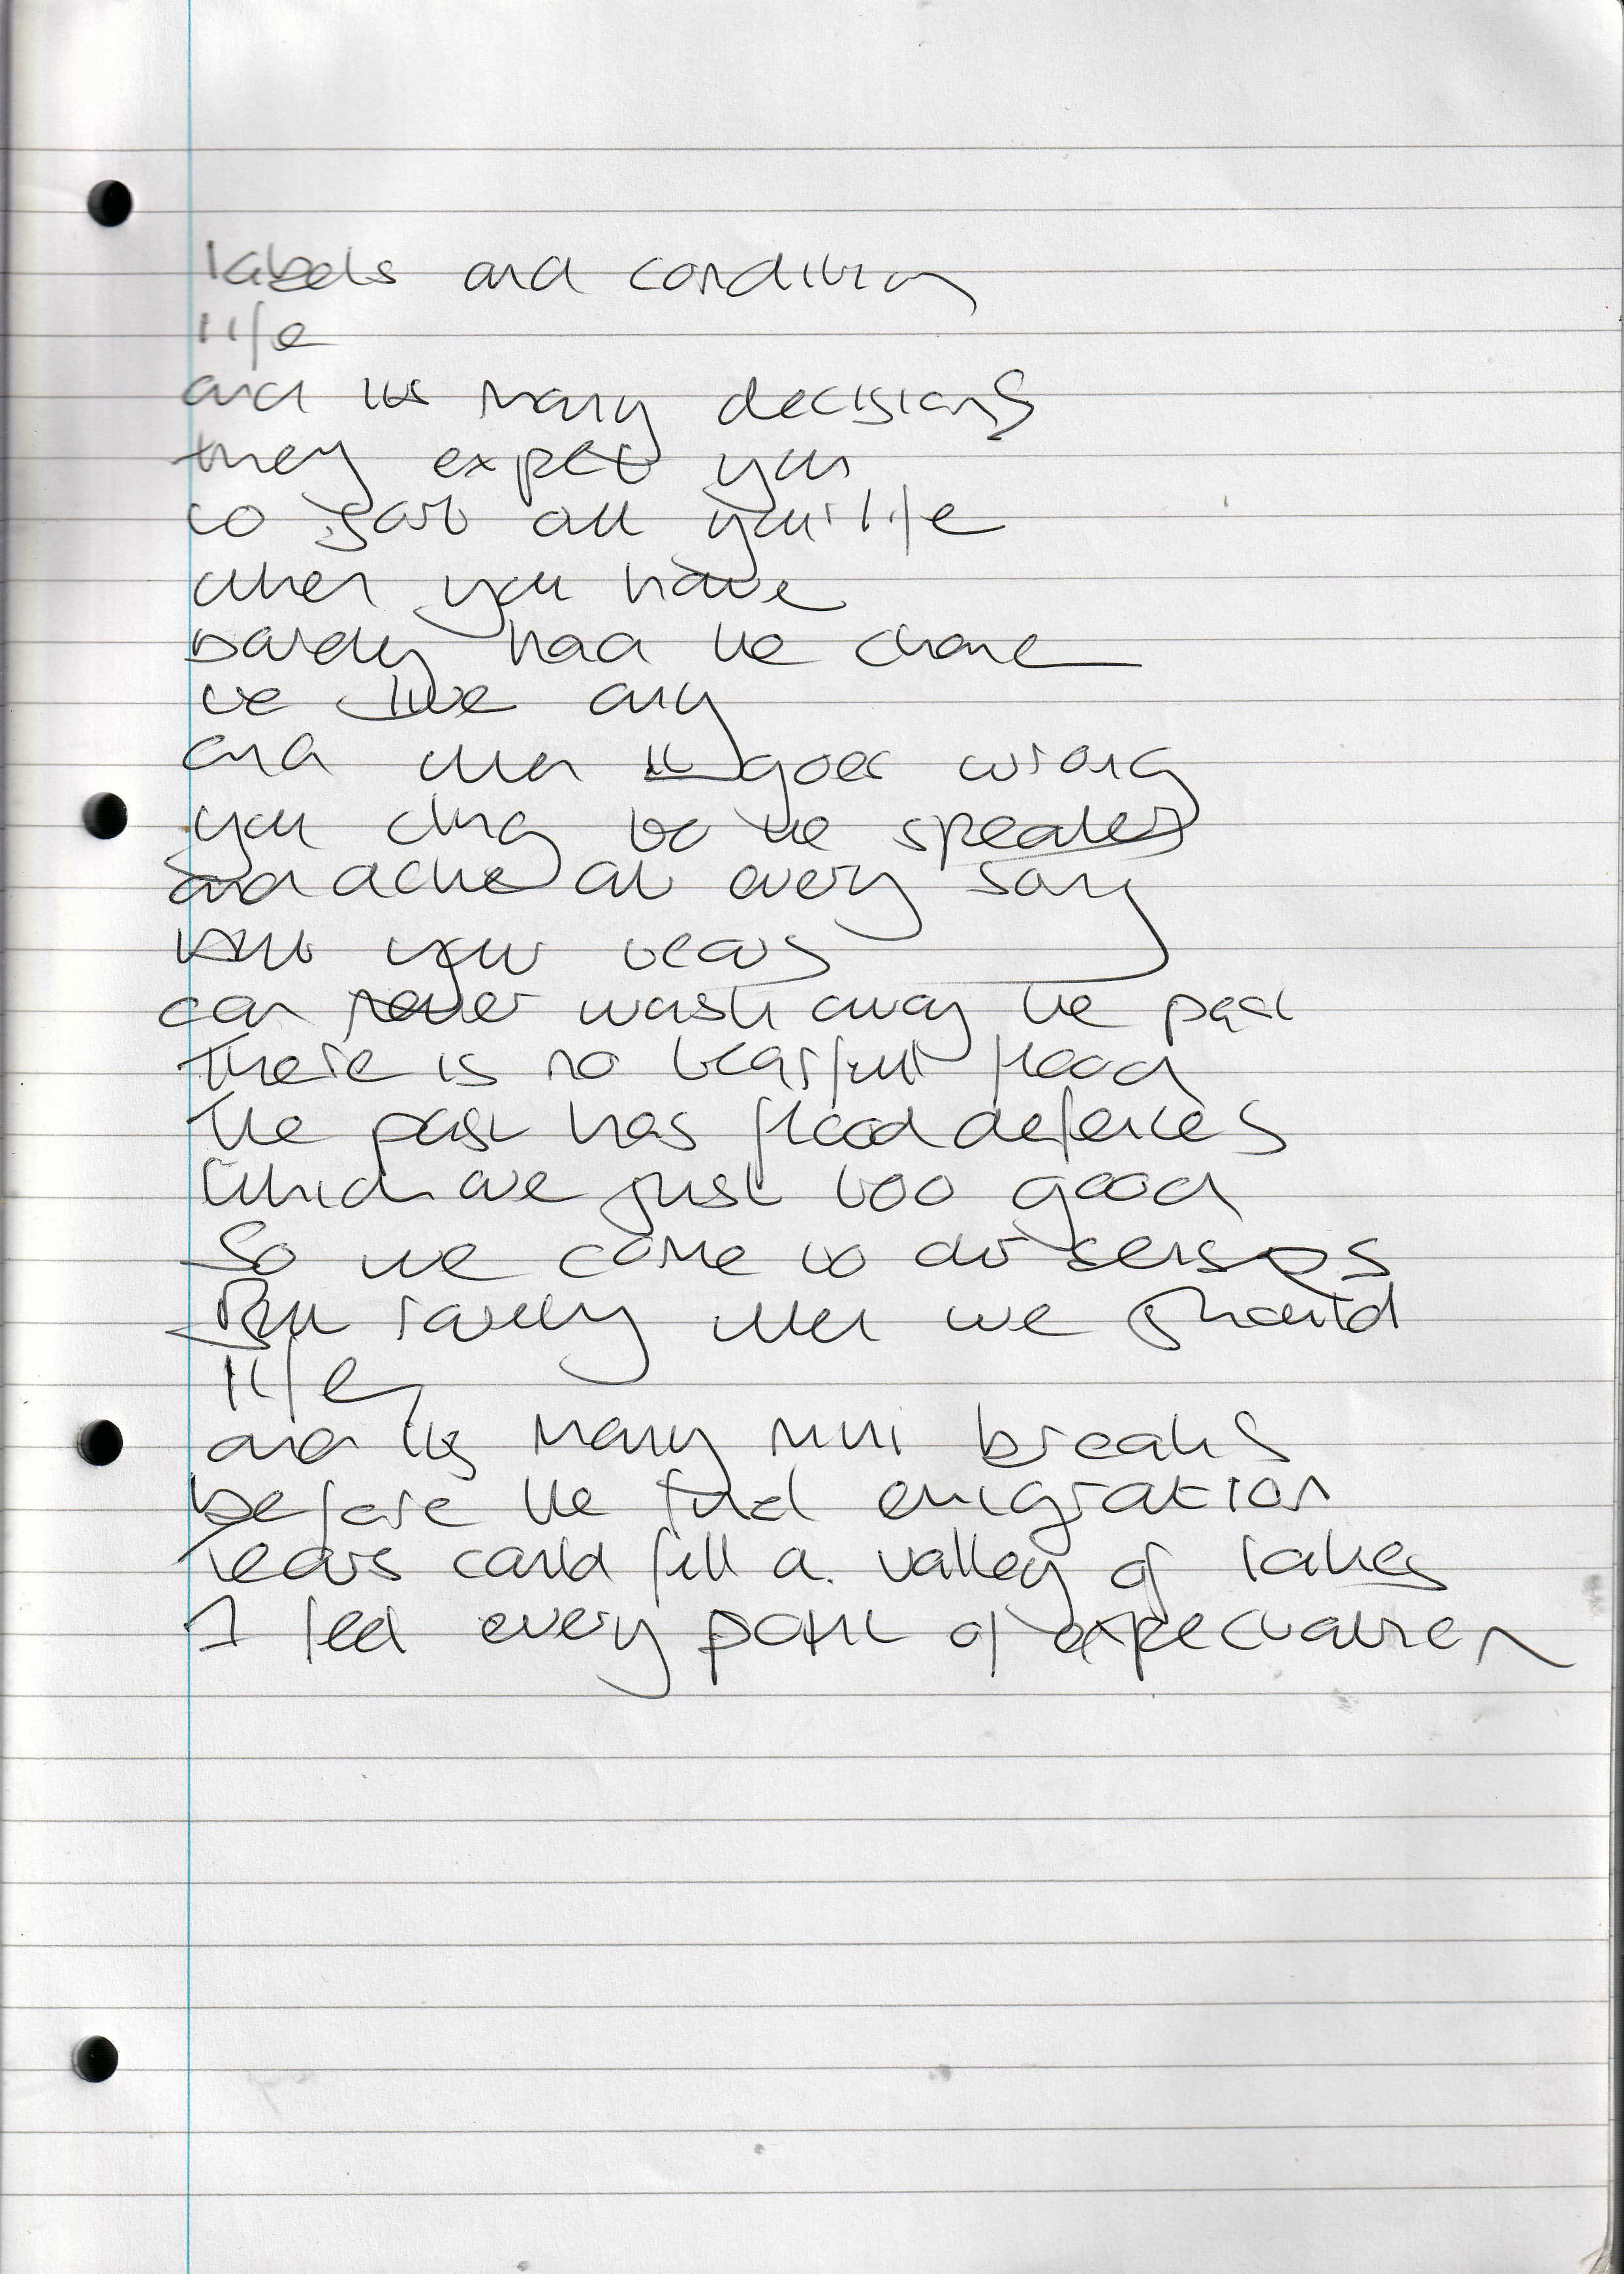 labels and condition
life
and its many decisions
they expect you
to sort all your life
when you have
barely had the chance
to live any
and when it goes wrong
you cling to the speakers
and ache at every song
but your tears
can never wash away the past
There is no tearful flood
The past has flood defences
Which are just too good
So we come to our senses
But rarely when we should
life
and its many mini breaks
before the final emigration
Tears could fill a valley of lakes
I feel every point of expectation